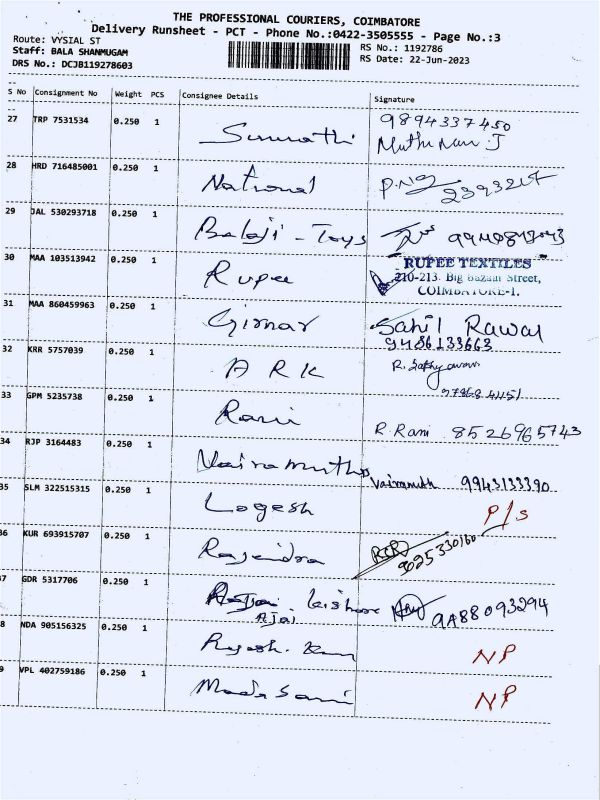 THE PROFESSIONAL COURIERS, COIMBATORE
Delivery Runsheet - PCT - Phone No.:0422-3505555 - Page No.:3
Route: VYSIAL ST
Staff: BALA SHANMUGAM
DRS No.: DCJB119278603
RS No.: 1192786
RS Date: 22-Jun-2023
S No Consignment No Weight PCS Consignee Details Signature
27 TRP 7531534 0.250 1 Sumathi 9894337450
Muthu J
28 HRD 716485001 0.250 1 National
29 JAL 530293718 0.250 1 Balaji - Toys
30 MAA 103513942 0.250 1 Rupee RUPEE TEXTILES
210-213, Big Bazaar Street,
COIMBATORE-1.
31 MAA 860459963 0.250 1 Girnar Sahil Rawal
9486133663
32 KRR 5757039 0.250 1 A R K
33 GPM 5235738 0.250 1 Rani R. Rani 8526965743
34 RJP 3164483 0.250 1 Vairamuthu Vairamuth 9943133390
35 SLM 322515315 0.250 1 Logesh P/S
36 KUR 693915707 0.250 1 Rajendra 9625330160
37 GDR 5317706 0.250 1 kishore 9488093294
Ajai
8 NDA 905156325 0.250 1 Rajesh. NP
9 VPL 402759186 0.250 1 Mada Sami NP